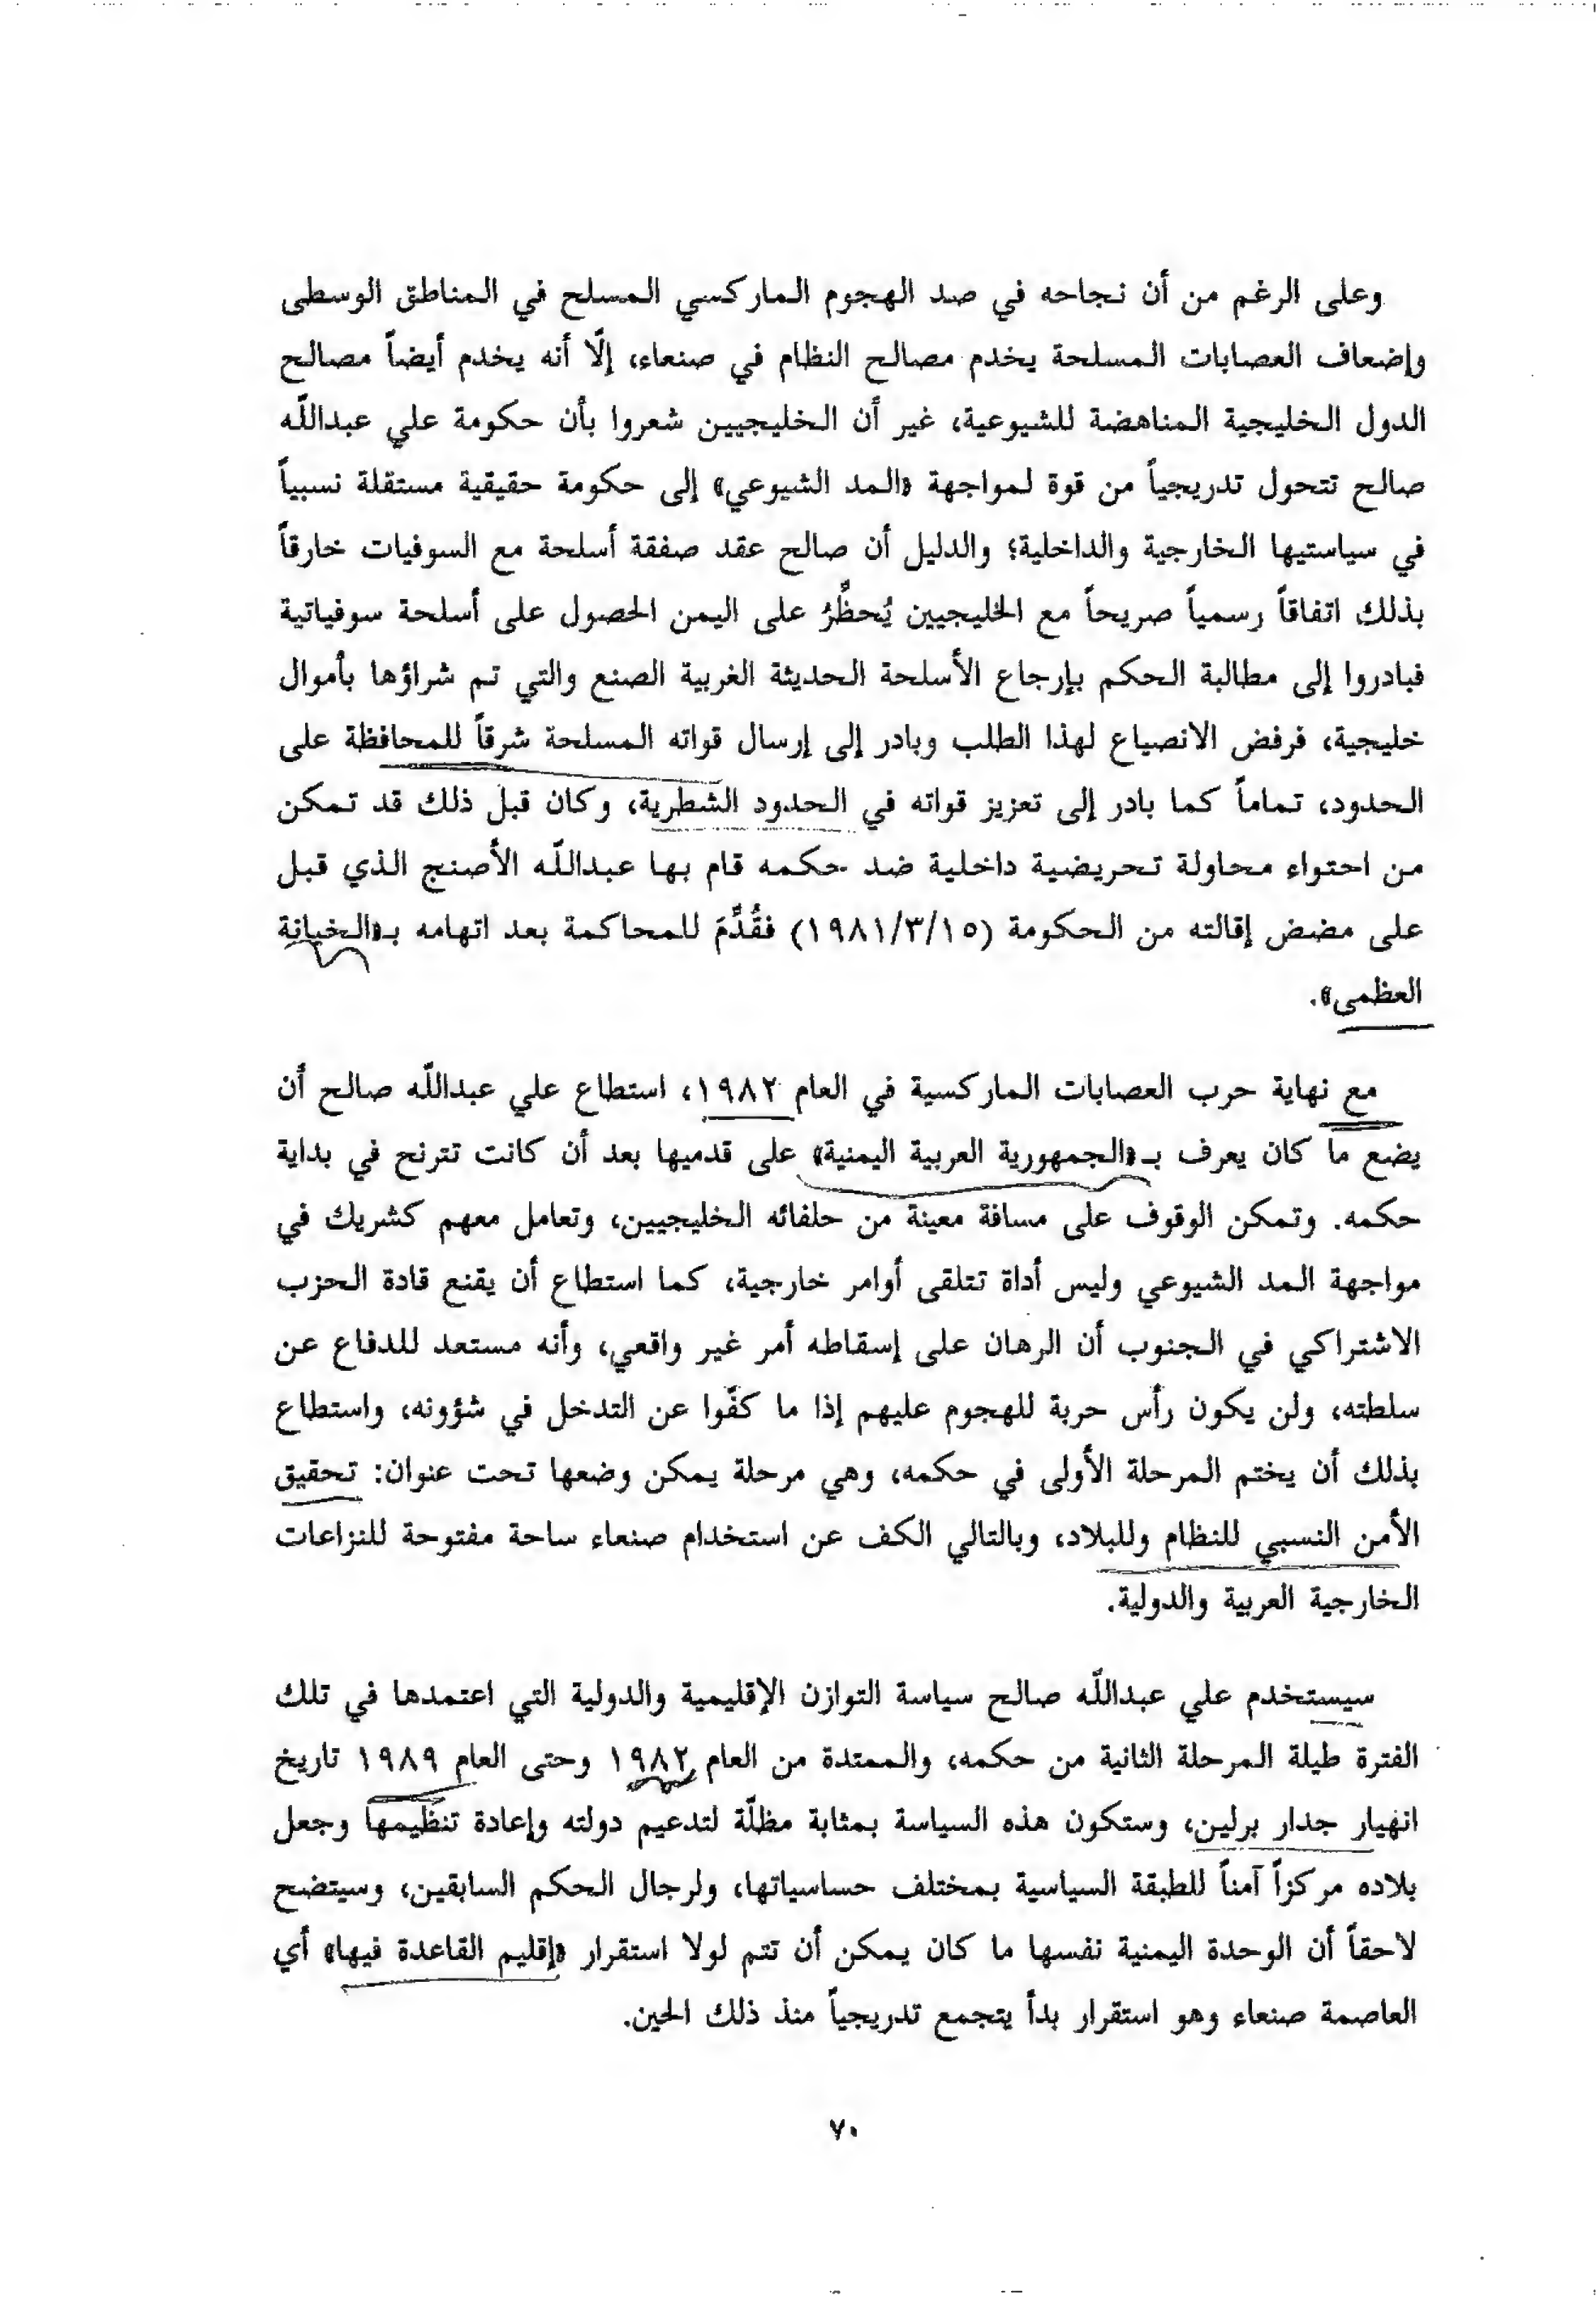 وعلى الرغم من أن نجاحه في صد الهجوم الماركسي المسلح في المناطق الوسطى
وإضعاف العصابات المسلحة يخدم مصالح النظام في صنعاء، إلّا أنه يخدم أيضاً مصالح
الدول الخليجية المناهضة للشيوعية، غير أن الخليجيين شعروا بأن حكومة علي عبداللّه
صالح تتحول تدريجياً من قوة لمواجهة «المد الشيوعي» إلى حكومة حقيقية مستقلة نسبياً
في سياستيها الخارجية والداخلية؛ والدليل أن صالح عقد صفقة أسلحة مع السوفيات خارقاً
بذلك اتفاقاً رسمياً صريحاً مع الخليجيين يُحظِّرُ على اليمن الحصول على أسلحة سوفياتية
فبادروا إلى مطالبة الحكم بإرجاع الأسلحة الحديثة الغربية الصنع والتي تم شراؤها بأموال
خليجية، فرفض الانصياع لهذا الطلب وبادر إلى إرسال قواته المسلحة شرقاً للمحافظة على
الحدود، تماماً كما بادر إلى تعزيز قواته في الحدود الشطرية، وكان قبل ذلك قد تمكن
من احتواء محاولة تحريضية داخلية ضد حكمه قام بها عبداللّه الأصنج الذي قبل
على مضض إقالته من الحكومة (١٩٨١/٣/١٥) فقُدِّمَ للمحاكمة بعد اتهامه بـ«الخيانة
العظمى».
مع نهاية حرب العصابات الماركسية في العام ١٩٨٢، استطاع علي عبداللّه صالح أن
يضع ما كان يعرف بـ«الجمهورية العربية اليمنية» على قدميها بعد أن كانت تترنح في بداية
حكمه. وتمكن الوقوف على مسافة معينة من حلفائه الخليجيين، وتعامل معهم كشريك في
مواجهة المد الشيوعي وليس أداة تتلقى أوامر خارجية، كما استطاع أن يقنع قادة الحزب
الاشتراكي في الجنوب أن الرهان على إسقاطه أمر غير واقعي، وأنه مستعد للدفاع عن
سلطته، ولن يكون رأس حربة للهجوم عليهم إذا ما كفّوا عن التدخل في شؤونه، واستطاع
بذلك أن يختم المرحلة الأولى في حكمه، وهي مرحلة يمكن وضعها تحت عنوان: تحقيق
الأمن النسبي للنظام وللبلاد، وبالتالي الكف عن استخدام صنعاء ساحة مفتوحة للنزاعات
الخارجية العربية والدولية.
سيستخدم علي عبداللّه صالح سياسة التوازن الإقليمية والدولية التي اعتمدها في تلك
الفترة طيلة المرحلة الثانية من حكمه، والممتدة من العام ١٩٨٢ وحتى العام ١٩٨٩ تاريخ
انهيار جدار برلين، وستكون هذه السياسة بمثابة مظلّة لتدعيم دولته وإعادة تنظيمها وجعل
بلاده مركزاً آمناً للطبقة السياسية بمختلف حساسياتها، ولرجال الحكم السابقين، وسيتضح
لاحقاً أن الوحدة اليمنية نفسها ما كان يمكن أن تتم لولا استقرار «إقليم القاعدة فيها» أي
العاصمة صنعاء وهو استقرار بدأ يتجمع تدريجياً منذ ذلك الحين.
٧٠